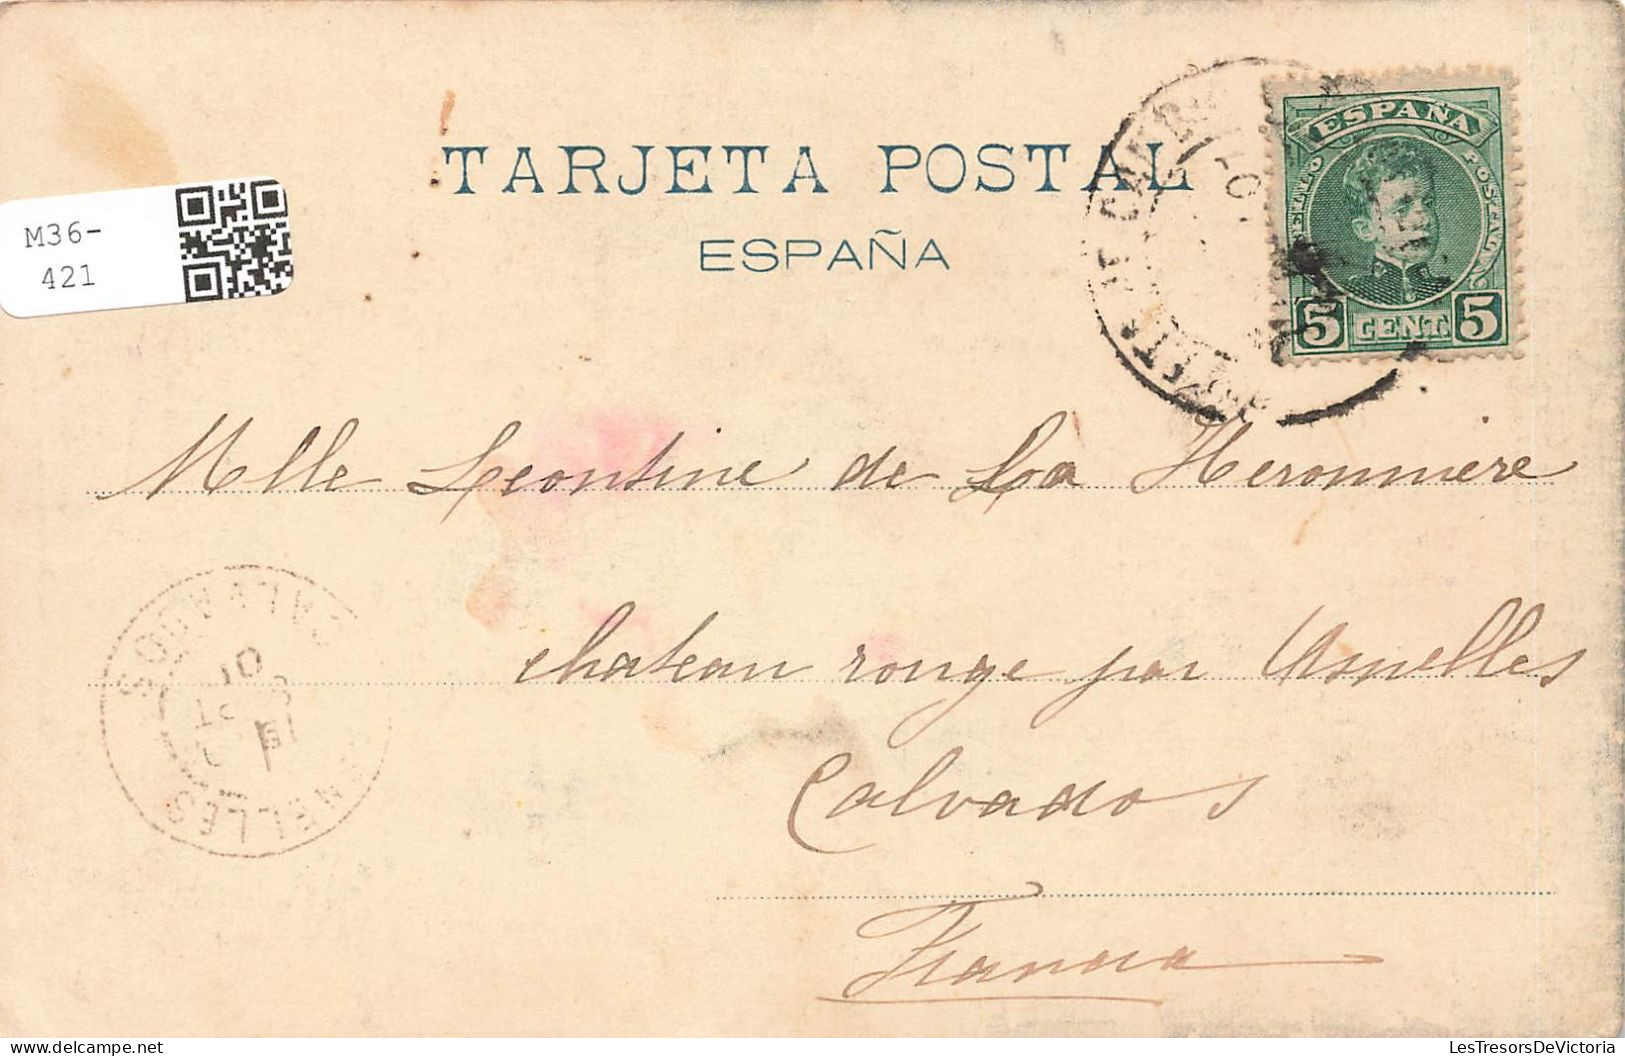 TARJETA POSTAL
ESPAÑA
M36-
421
ESPAÑA
SELLO POSTAL
5 CENT. 5
Mlle Leontine de La Heronniere
chateau rouge par Asnelles
Calvados
Francia
CALVADOS
ASNELLES
01
LesTresorsDeVictoria
www.delcampe.net